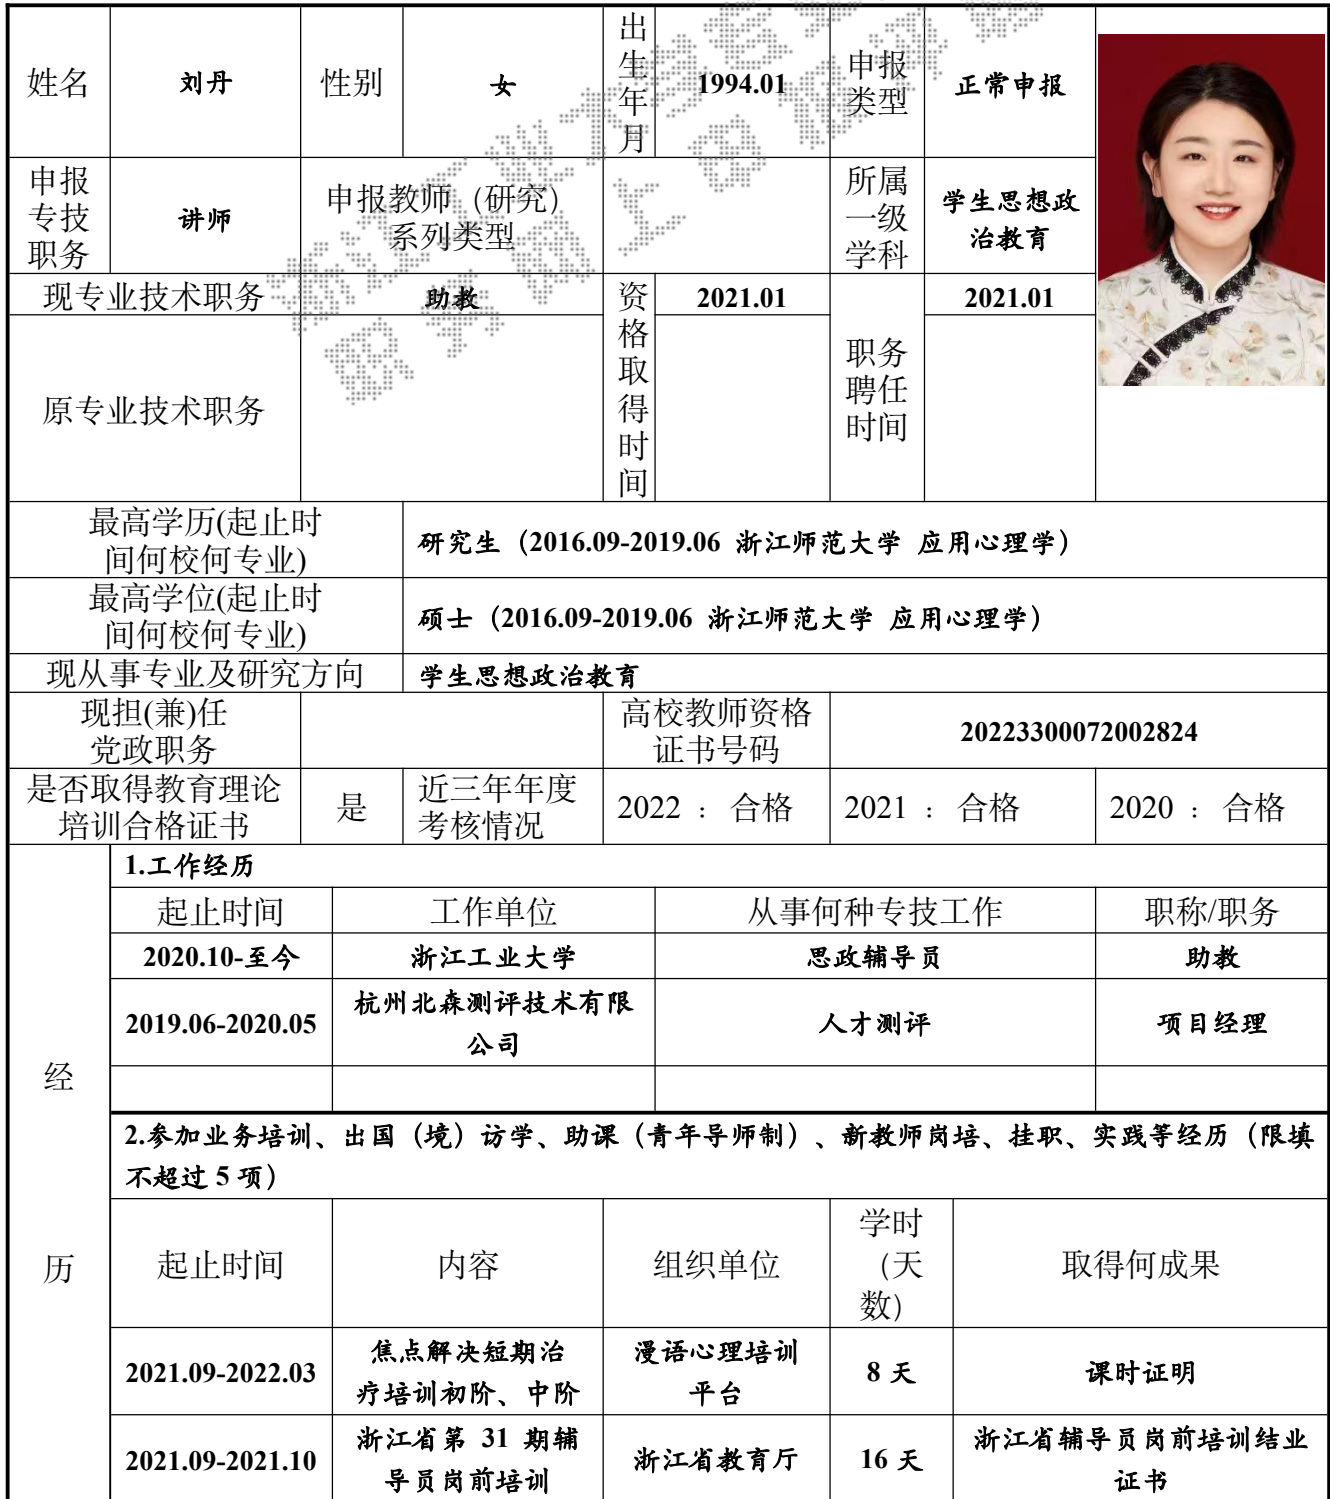 姓名 刘丹 性别 女 出生年月 1994.01 申报类型 正常申报
申报专技职务 讲师 申报教师（研究）系列类型 所属一级学科 学生思想政治教育
现专业技术职务 助教 资格取得时间 2021.01 职务聘任时间 2021.01
原专业技术职务
最高学历(起止时间何校何专业) 研究生（2016.09-2019.06 浙江师范大学 应用心理学）
最高学位(起止时间何校何专业) 硕士（2016.09-2019.06 浙江师范大学 应用心理学）
现从事专业及研究方向 学生思想政治教育
现担(兼)任党政职务 高校教师资格证书号码 20223300072002824
是否取得教育理论培训合格证书 是 近三年年度考核情况 2022 ：合格 2021 ：合格 2020 ：合格
经历
1.工作经历
起止时间 工作单位 从事何种专技工作 职称/职务
2020.10-至今 浙江工业大学 思政辅导员 助教
2019.06-2020.05 杭州北森测评技术有限公司 人才测评 项目经理
2.参加业务培训、出国（境）访学、助课（青年导师制）、新教师岗培、挂职、实践等经历（限填
不超过 5 项）
起止时间 内容 组织单位 学时（天数） 取得何成果
2021.09-2022.03 焦点解决短期治疗培训初阶、中阶 漫语心理培训平台 8 天 课时证明
2021.09-2021.10 浙江省第 31 期辅导员岗前培训 浙江省教育厅 16 天 浙江省辅导员岗前培训结业证书